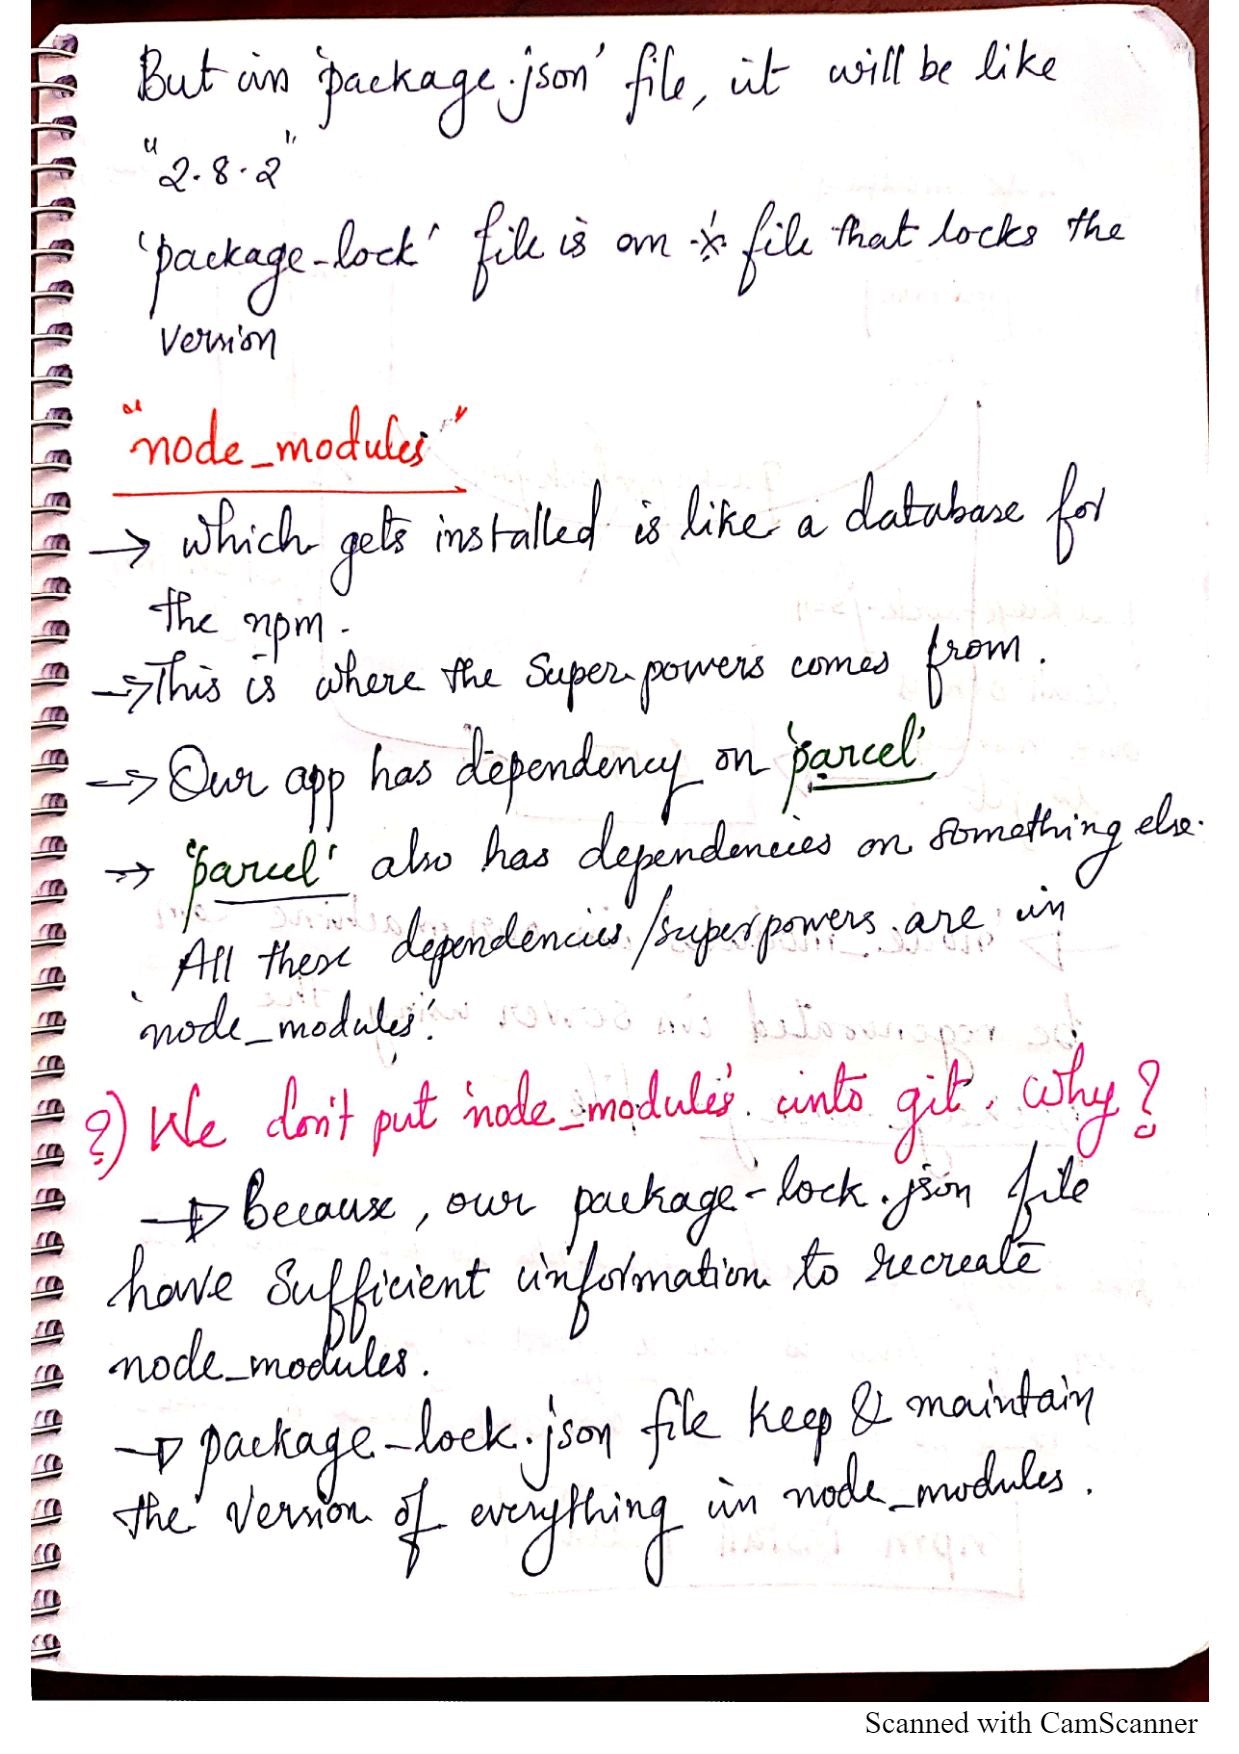 But in 'package.json' file, it will be like
"2.8.2"
'package-lock' file is an file that locks the
version
"node_modules"
→ which gets installed is like a database for
the npm.
→ This is where the Super powers comes from.
→ Our app has dependency on 'parcel'
→ 'parcel' also has dependencies on something else.
All these dependencies/superpowers are in
'node_modules'.
?) We don't put 'node_modules' into git. Why?
→ Because, our package-lock.json file
have Sufficient information to recreate
node_modules.
→ package-lock.json file keep & maintain
the version of everything in node_modules.
Scanned with CamScanner